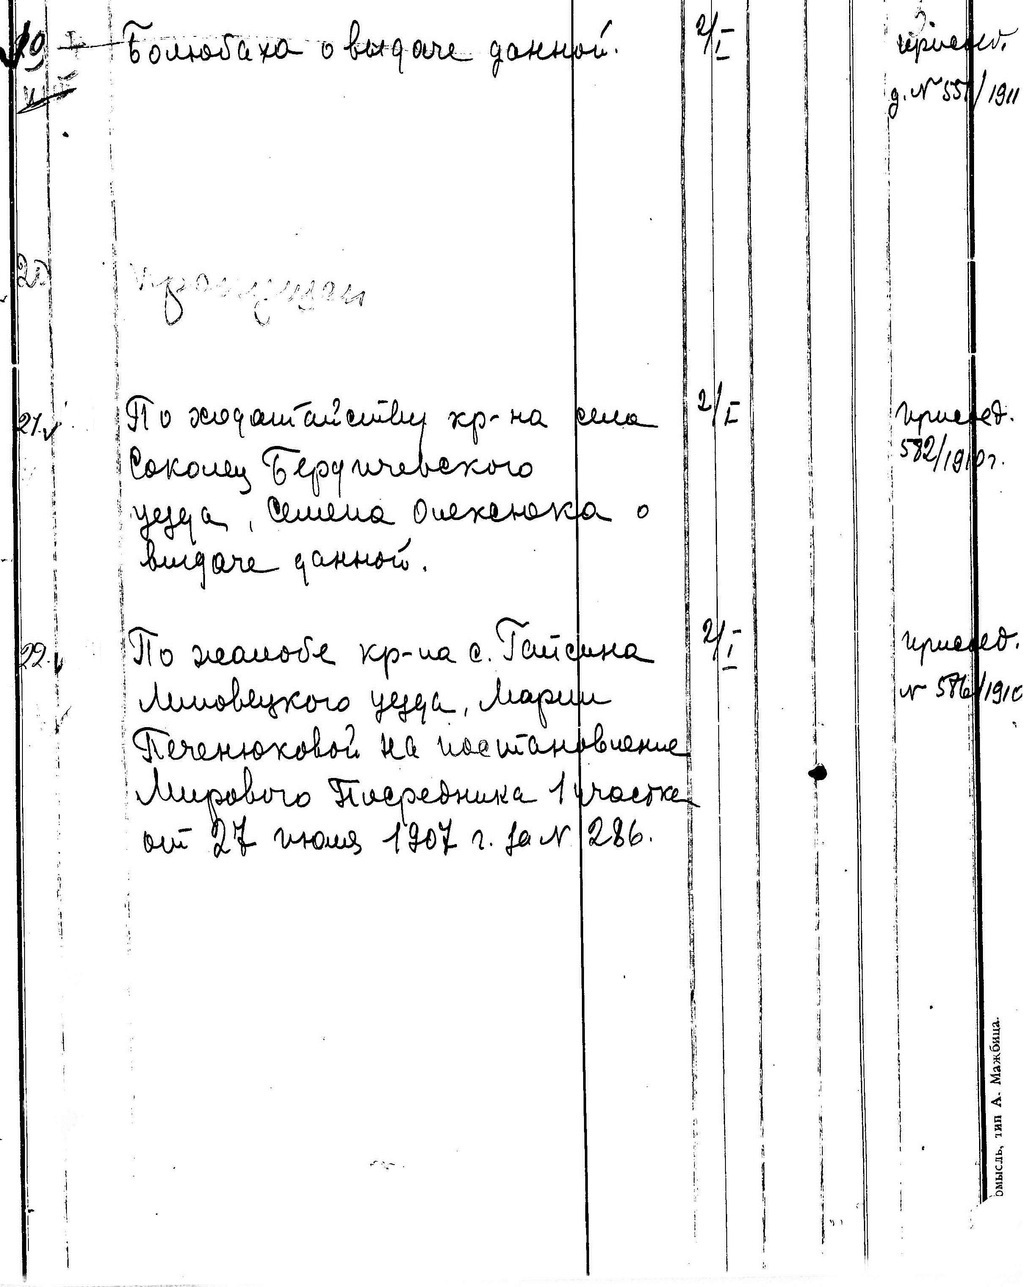 19 I Болюбаха о выдаче данной. 2/I присоед.
д. N 551/1911
20 пропущен
21. По ходатайству кр-на села 2/I присоед.
Соколец Бердичевского 582/1910 г.
уезда, Семена Олексюка о
выдаче данной.
22. По жалобе кр-ка с. Гайсина 2/I присоед.
Липовецкого уезда, Марии N 586/1910
Печенюковой на постановление
Мирового Посредника 1 участка
от 27 июля 1907 г. за N 286.
омысль, тип А. Мажбица.